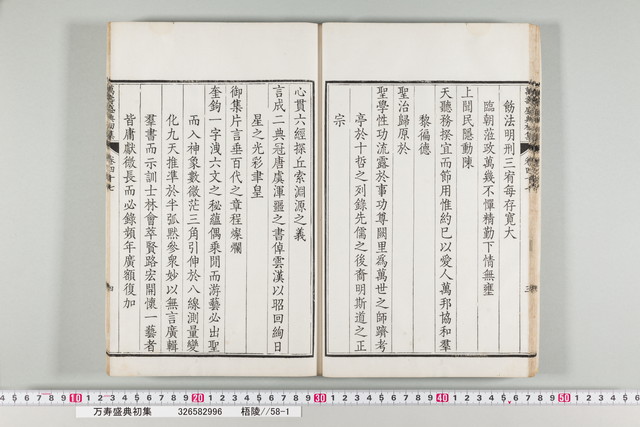 飭法明刑三宥每存寬大
臨朝蒞政萬幾不憚精勤下情無壅
上聞民隱動陳
天聽務揆宜而節用惟約己以愛人萬邦協和羣
黎徧德
聖治歸原於
聖學性功流露於事功尊闕里為萬世之師躋考
亭於十哲之列錄先儒之後裔明斯道之正
宗
心貫六經探丘索淵源之義
言成二典冠唐虞渾噩之書倬雲漢以昭回絢日
星之光彩聿皇
御集片言垂百代之章程燦爛
奎鉤一字洩六文之秘蘊偶乗閒而游藝必出聖
而入神象數微茫三角引伸於八線測量變
化九天推準於半弧黙參衆妙以無言廣輯
羣書而示訓士林會萃賢路宏開懷一藝者
皆庸獻微長而必錄頻年廣額復加
10 20 30 40 50
万寿盛典初集 326582996 梧陵//58-1